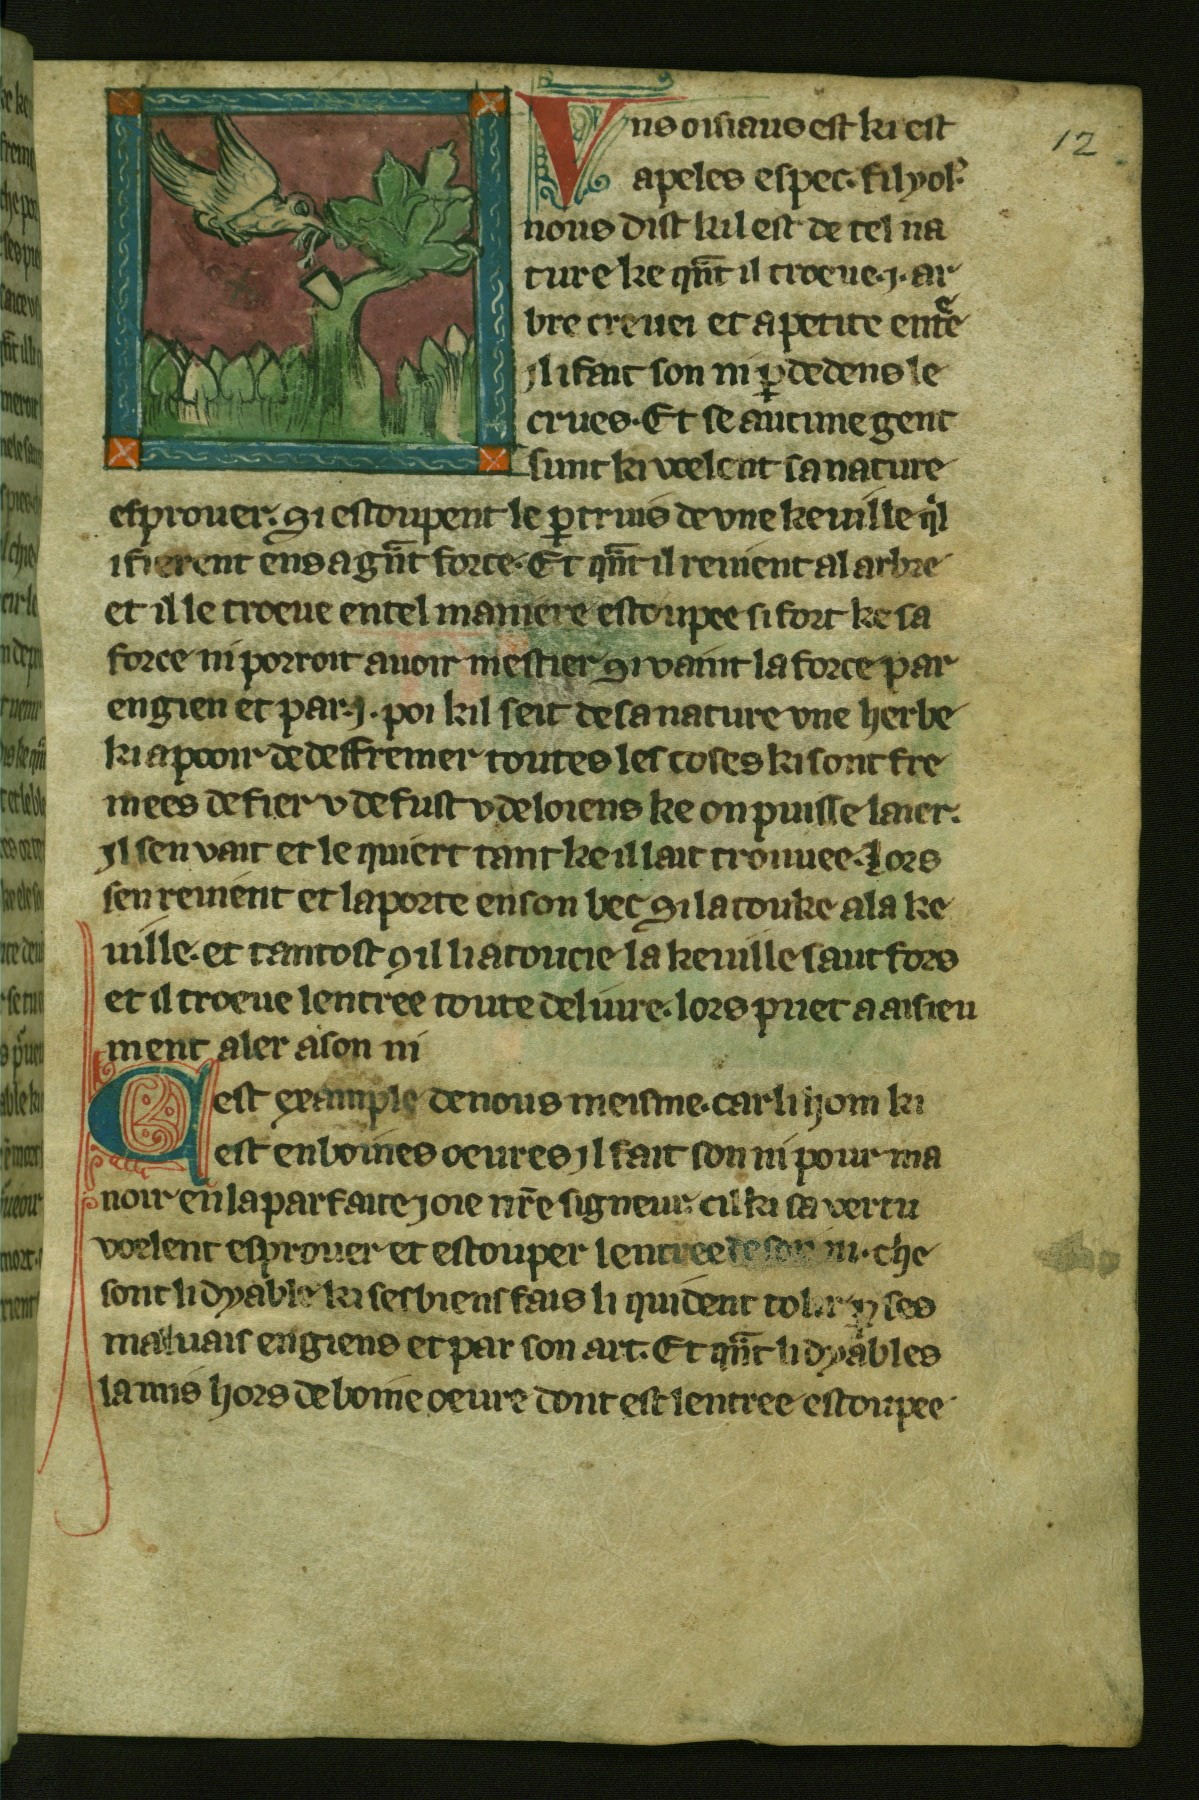 12
Vns oisiaus est ki est
apeles espec. filyol᾽.
nous dist kil est de tel na
ture ke qn̄t il troeue .j. ar
bre creuei et a petite entᵉe
jl i fait son ni ꝑ dedens le
crues. Et se aucune gent
sunt ki voelent sa nature
esprouer. si estoupent le ꝑtruis de vne keuille qͥl
i fierent ens a gn̄t force. Et qn̄t il reuient al arbre
et il le troeue en tel maniere estoupee si fort ke sa
force ni porroit auoir mestier si vaint la force par
engien et par .j. poi kil seit de sa nature vne herbe
ki a pooir de deffremer toutes les coses ki sont fre
mees de fier v de fust v de loiens ke on puisse laier.
jl sen vait et le quiert tant ke il lait trouuee. Lors
sen reuient et laporte en son bec si la touke a la ke
uille. et tantost 9 il li a toucie la keuille saut fors
et il troeue lentree toute deliure. lors puet a aisieu
ment aler a son ni
Cest example de nous meisme. car li hom ki
est en boines oeures jl fait son ni pour ma
noir en la parfaite joie nr̄e signeur. cil ki sa vertu
voelent esprouer et estouper lentree de son ni. che
sont li dyable ki ses biens fais li quident tolir ꝑ ses
maluais engiens et par son art. Et qn̄t li dyables
la mis hors de boine oeure dont est lentree estoupee